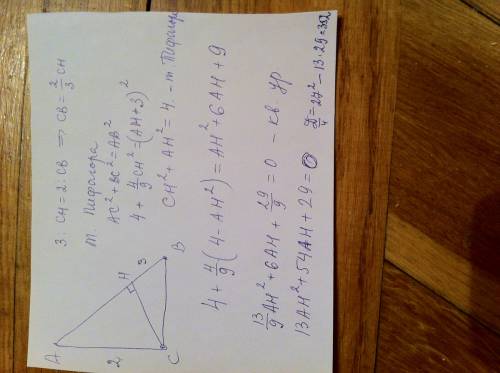 3 : CH = 2 : CB ⇒ CB = 2/3 CH
т. Пифагора
AC² + BC² = AB²
4 + 4/9 CH² = (AH + 3)²
CH² + AH² = 4. – т Пифагора
4 + 4/9 (4 - AH²) = AH² + 6AH + 9
13/9 AH² + 6AH + 29/9 = 0 – кв. ур
13AH² + 54AH + 29 = 0
D/4 = 27² - 13·29 = 352
A
H
3
B
2
C